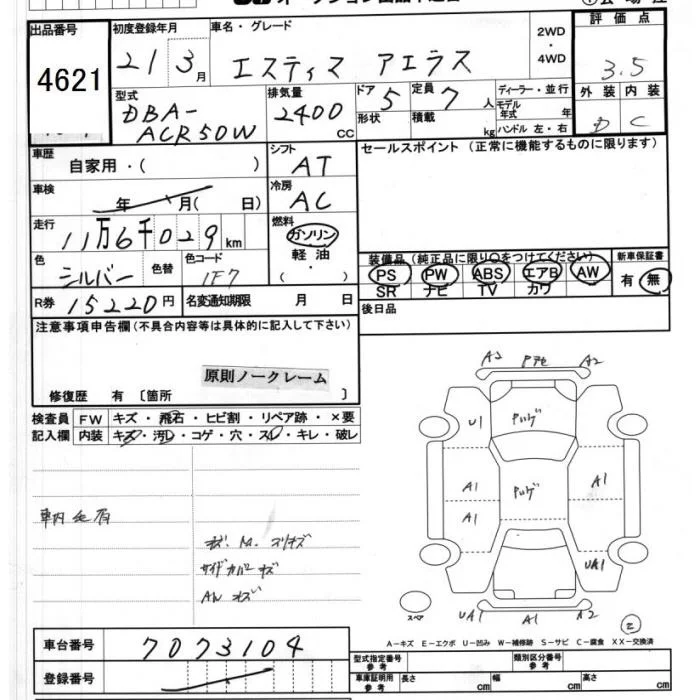 出品番号 初度登録年月 車名・グレード 2WD・4WD 評価点
4621 21 3月 エスティマ アエラス 3.5
型式 排気量 ドア 定員 ディーラー・並行 外装 内装
DBA- 2400 5 7人 モデル年式 年 D C
ACR50W CC 形状 積載 kg ハンドル 左・右
車歴 シフト セールスポイント(正常に機能するものに限ります)
自家用・( ) AT
車検 冷房
年 月( 日) AC
走行 燃料
11万6千029km ガソリン
軽油
・
( )
色 色替 色コード 装備品(純正品に限り○をつけてください) 新車保証書
シルバー 1F7 PS PW ABS エアB AW 有 無
SR ナビ TV カワ
R券 15220円 名変通知期限 月 日 後日品
注意事項申告欄(不具合内容等は具体的に記入して下さい)
原則ノークレーム
修復歴 有 〔箇所 〕
検査員 FW キズ・飛石・ヒビ割・リペア跡・×要
記入欄 内装 キズ・汚レ・コゲ・穴・スレ・キレ・破レ
A2 A2
U1
A1 A1
A1
UA1
車内
キズ
サイドカバーキズ
AW キズ
スペア UA1 A1 A2 2
A-キズ E-エクボ U-凹み W-補修跡 S-サビ C-腐食 XX-交換済
車台番号 7073104
登録番号
型式指定番号 参考 類別区分番号 参考
車庫証明用 参考 長さ cm 幅 cm 高さ cm